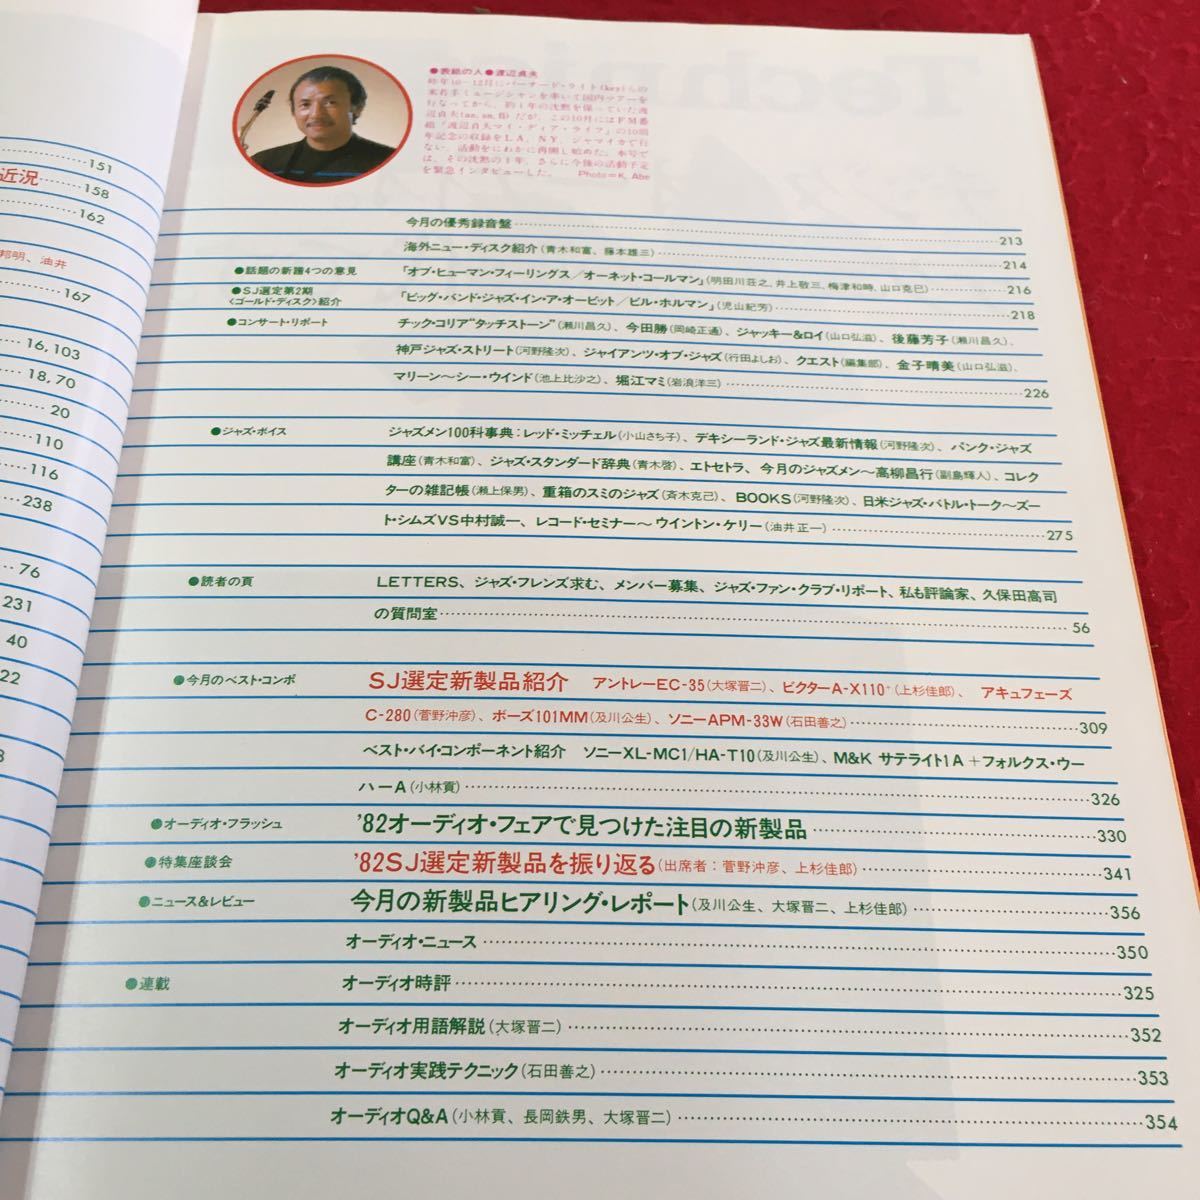 151
近況 158
162
邦明、油井
167
16,103
18,70
20
110
116
238
76
231
40
●表紙の人●渡辺貞夫
昨年10〜12月にバーナード・ライト(key)らの
米若手ミュージシャンを率いて国内ツアーを
行なってから、約1年の沈黙を保っていた渡
辺貞夫(as,sn,fl)だが、この10月にはFM番
組「渡辺貞夫マイ・ディア・ライフ」の10周
年記念の収録をLA、NY、ジャマイカで行
ない、活動をにわかに再開し始めた。本号で
は、その沈黙の1年、さらに今後の活動予定
を緊急インタビューした。 Photo=K, Abe
今月の優秀録音盤 213
海外ニュー・ディスク紹介(青木和富、藤本雄三) 214
●話題の新譜4つの意見 「オブ・ヒューマン・フィーリングス/オーネット・コールマン」(明田川荘之、井上敬三、梅津和時、山口克巳) 216
●SJ選定第2期
〈ゴールド・ディスク〉紹介 「ビッグ・バンド・ジャズ・イン・ア・オービット/ビル・ホルマン」(児山紀芳) 218
●コンサート・リポート チック・コリア“タッチストーン”(瀬川昌久)、今田勝(岡崎正通)、ジャッキー&ロイ(山口弘滋)、後藤芳子(瀬川昌久)、
神戸ジャズ・ストリート(河野隆次)、ジャイアンツ・オブ・ジャズ(行田よしお)、クエスト(編集部)、金子晴美(山口弘滋)、
マリーン〜シー・ウインド(池上比沙之)、堀江マミ(岩浪洋三) 226
●ジャズ・ボイス ジャズメン100科事典：レッド・ミッチェル(小山さち子)、デキシーランド・ジャズ最新情報(河野隆次)、パンク・ジャズ
講座(青木和富)、ジャズ・スタンダード辞典(青木啓)、エトセトラ、今月のジャズメン〜高柳昌行(副島輝人)、コレク
ターの雑記帳(瀬上保男)、重箱のスミのジャズ(斉木克己)、BOOKS(河野隆次)、日米ジャズ・バトル・トーク〜ズー
ト・シムズVS中村誠一、レコード・セミナー〜ウイントン・ケリー(油井正一) 275
●読者の頁 LETTERS、ジャズ・フレンズ求む、メンバー募集、ジャズ・ファン・クラブ・リポート、私も評論家、久保田高司
の質問室 56
●今月のベスト・コンポ SJ選定新製品紹介 アントレーEC-35(大塚晋二)、ビクターA-X110⁺(上杉佳郎)、アキュフェーズ
C-280(菅野沖彦)、ボーズ101MM(及川公生)、ソニーAPM-33W(石田善之) 309
ベスト・バイ・コンポーネント紹介 ソニーXL-MC1/HA-T10(及川公生)、M&K サテライト1A+フォルクス・ウー
ハーA(小林貢) 326
●オーディオ・フラッシュ '82オーディオ・フェアで見つけた注目の新製品 330
●特集座談会 '82SJ選定新製品を振り返る(出席者：菅野沖彦、上杉佳郎) 341
●ニュース&レビュー 今月の新製品ヒアリング・レポート(及川公生、大塚晋二、上杉佳郎) 356
オーディオ・ニュース 350
●連載 オーディオ時評 325
オーディオ用語解説(大塚晋二) 352
オーディオ実践テクニック(石田善之) 353
オーディオQ&A(小林貢、長岡鉄男、大塚晋二) 354